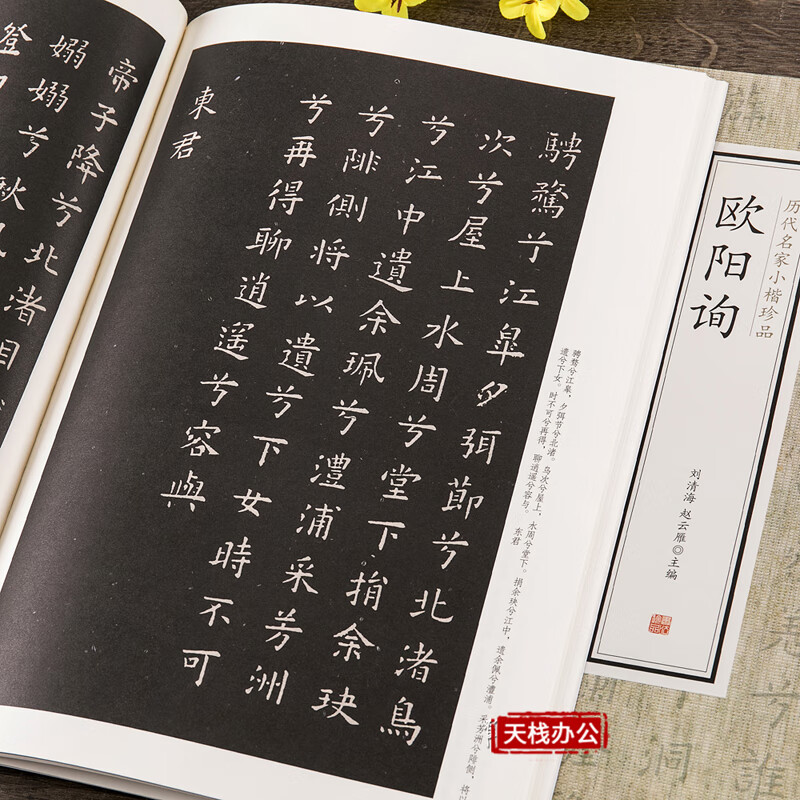 历代名家小楷珍品
欧阳询
刘清海 赵云雁◎主编
騁騖兮江皐夕弭節兮北渚鳥
次兮屋上水周兮堂下捐余玦
兮江中遺余珮兮澧浦采芳洲
兮陫側將以遺兮下女時不可
兮再得聊逍遥兮容與
東君
骋骛兮江皋，夕弭节兮北渚。鸟次兮屋上，水周兮堂下。捐余玦兮江中，遗余佩兮澧浦。采芳洲兮陫侧，将以
遗兮下女。时不可兮再得，聊逍遥兮容与。 东君
帝子降兮北渚目
嫋嫋兮秋
登
天栈办公